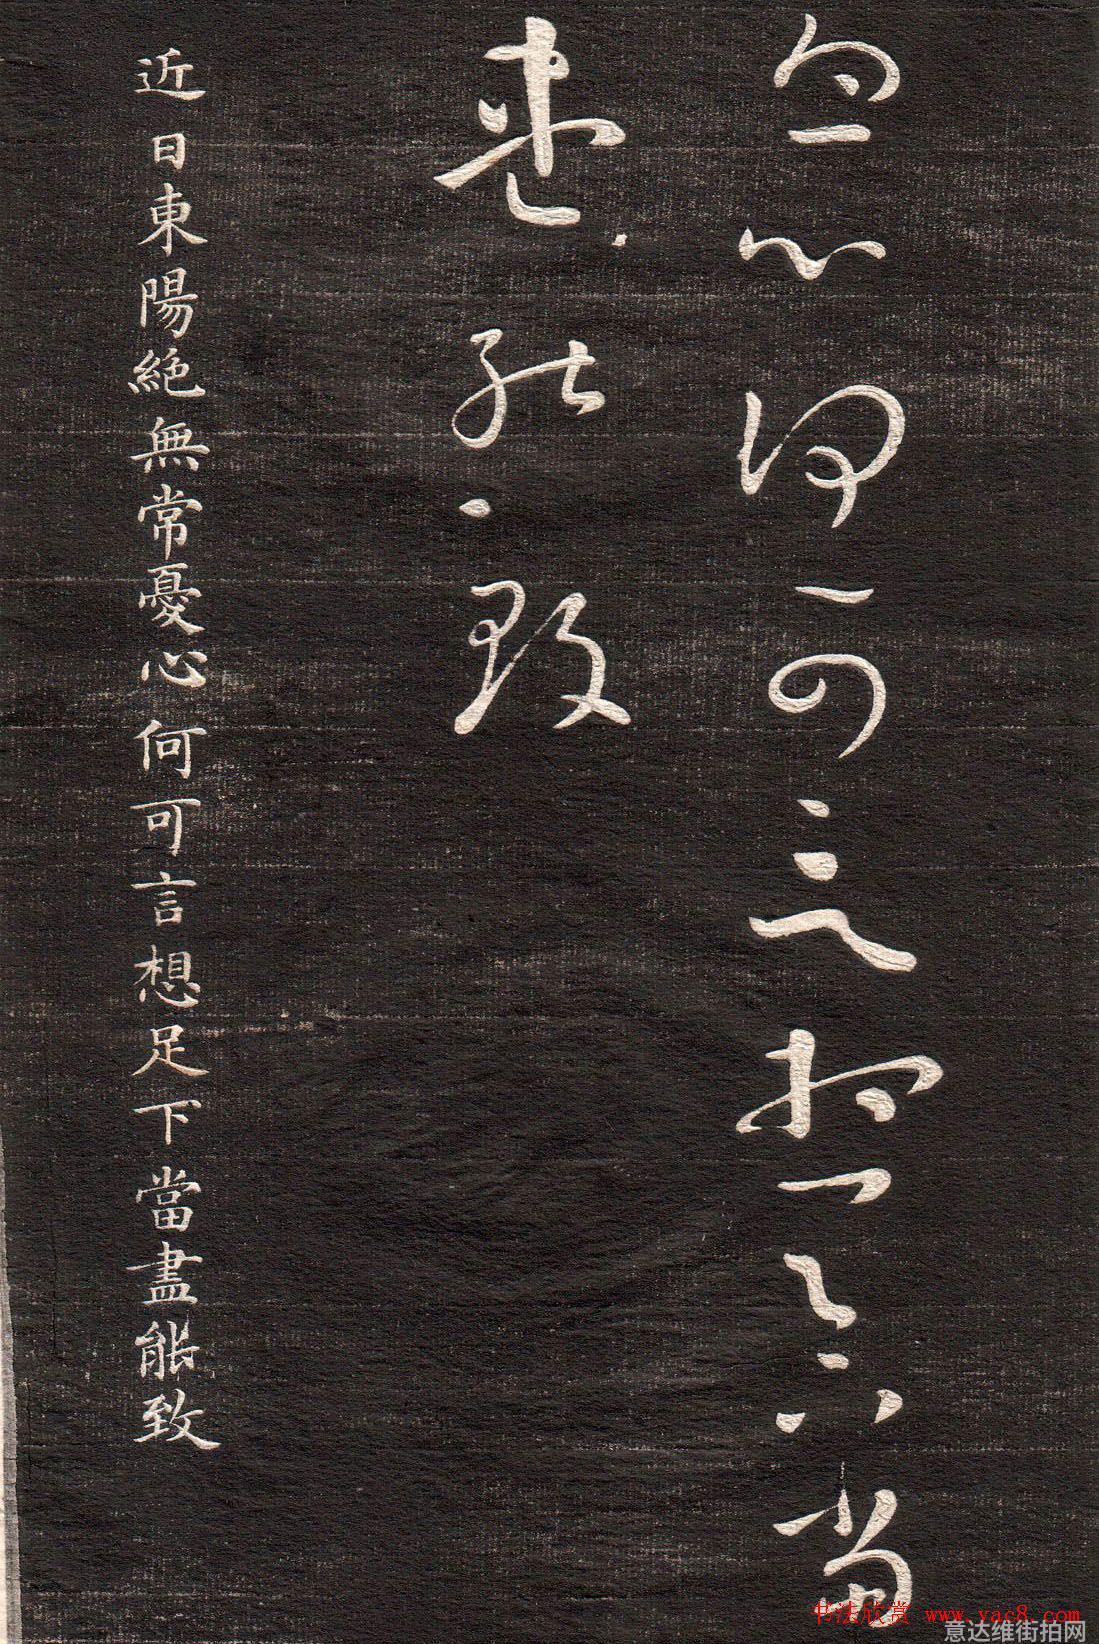 憂心何可言想足下當
盡能致
近日東陽絶無常憂心何可言想足下當盡能致
书法欣赏 www.yac8.com
意达维街拍网